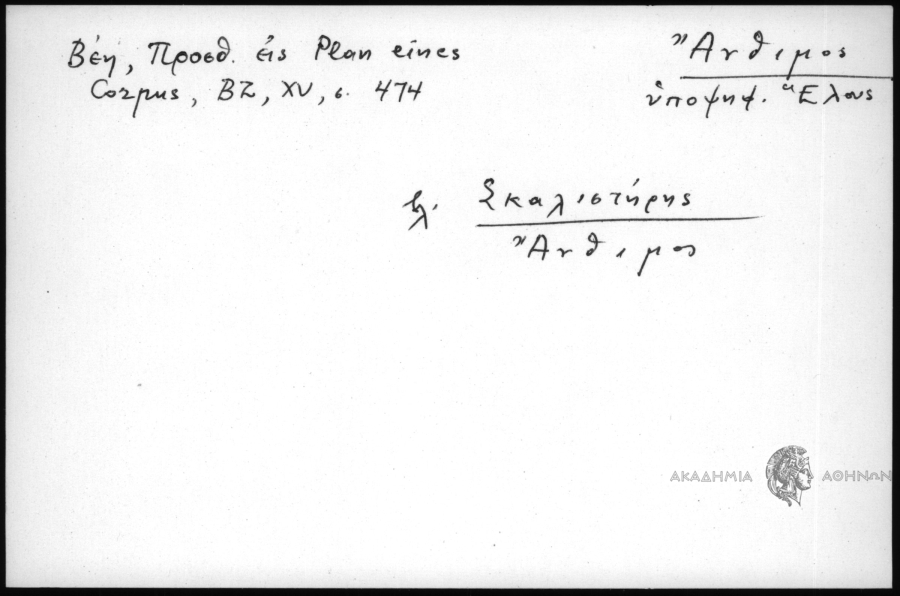 Βέη, Προσθ. εἰς Plan eines
Corpus, BZ, XV, σ. 474
Ἄνθιμος
ὑποψηφ. Ἕλους
βλ. Σκαλιστήρης
Ἄνθιμος
ΑΚΑΔΗΜΙΑ ΑΘΗΝΩΝ